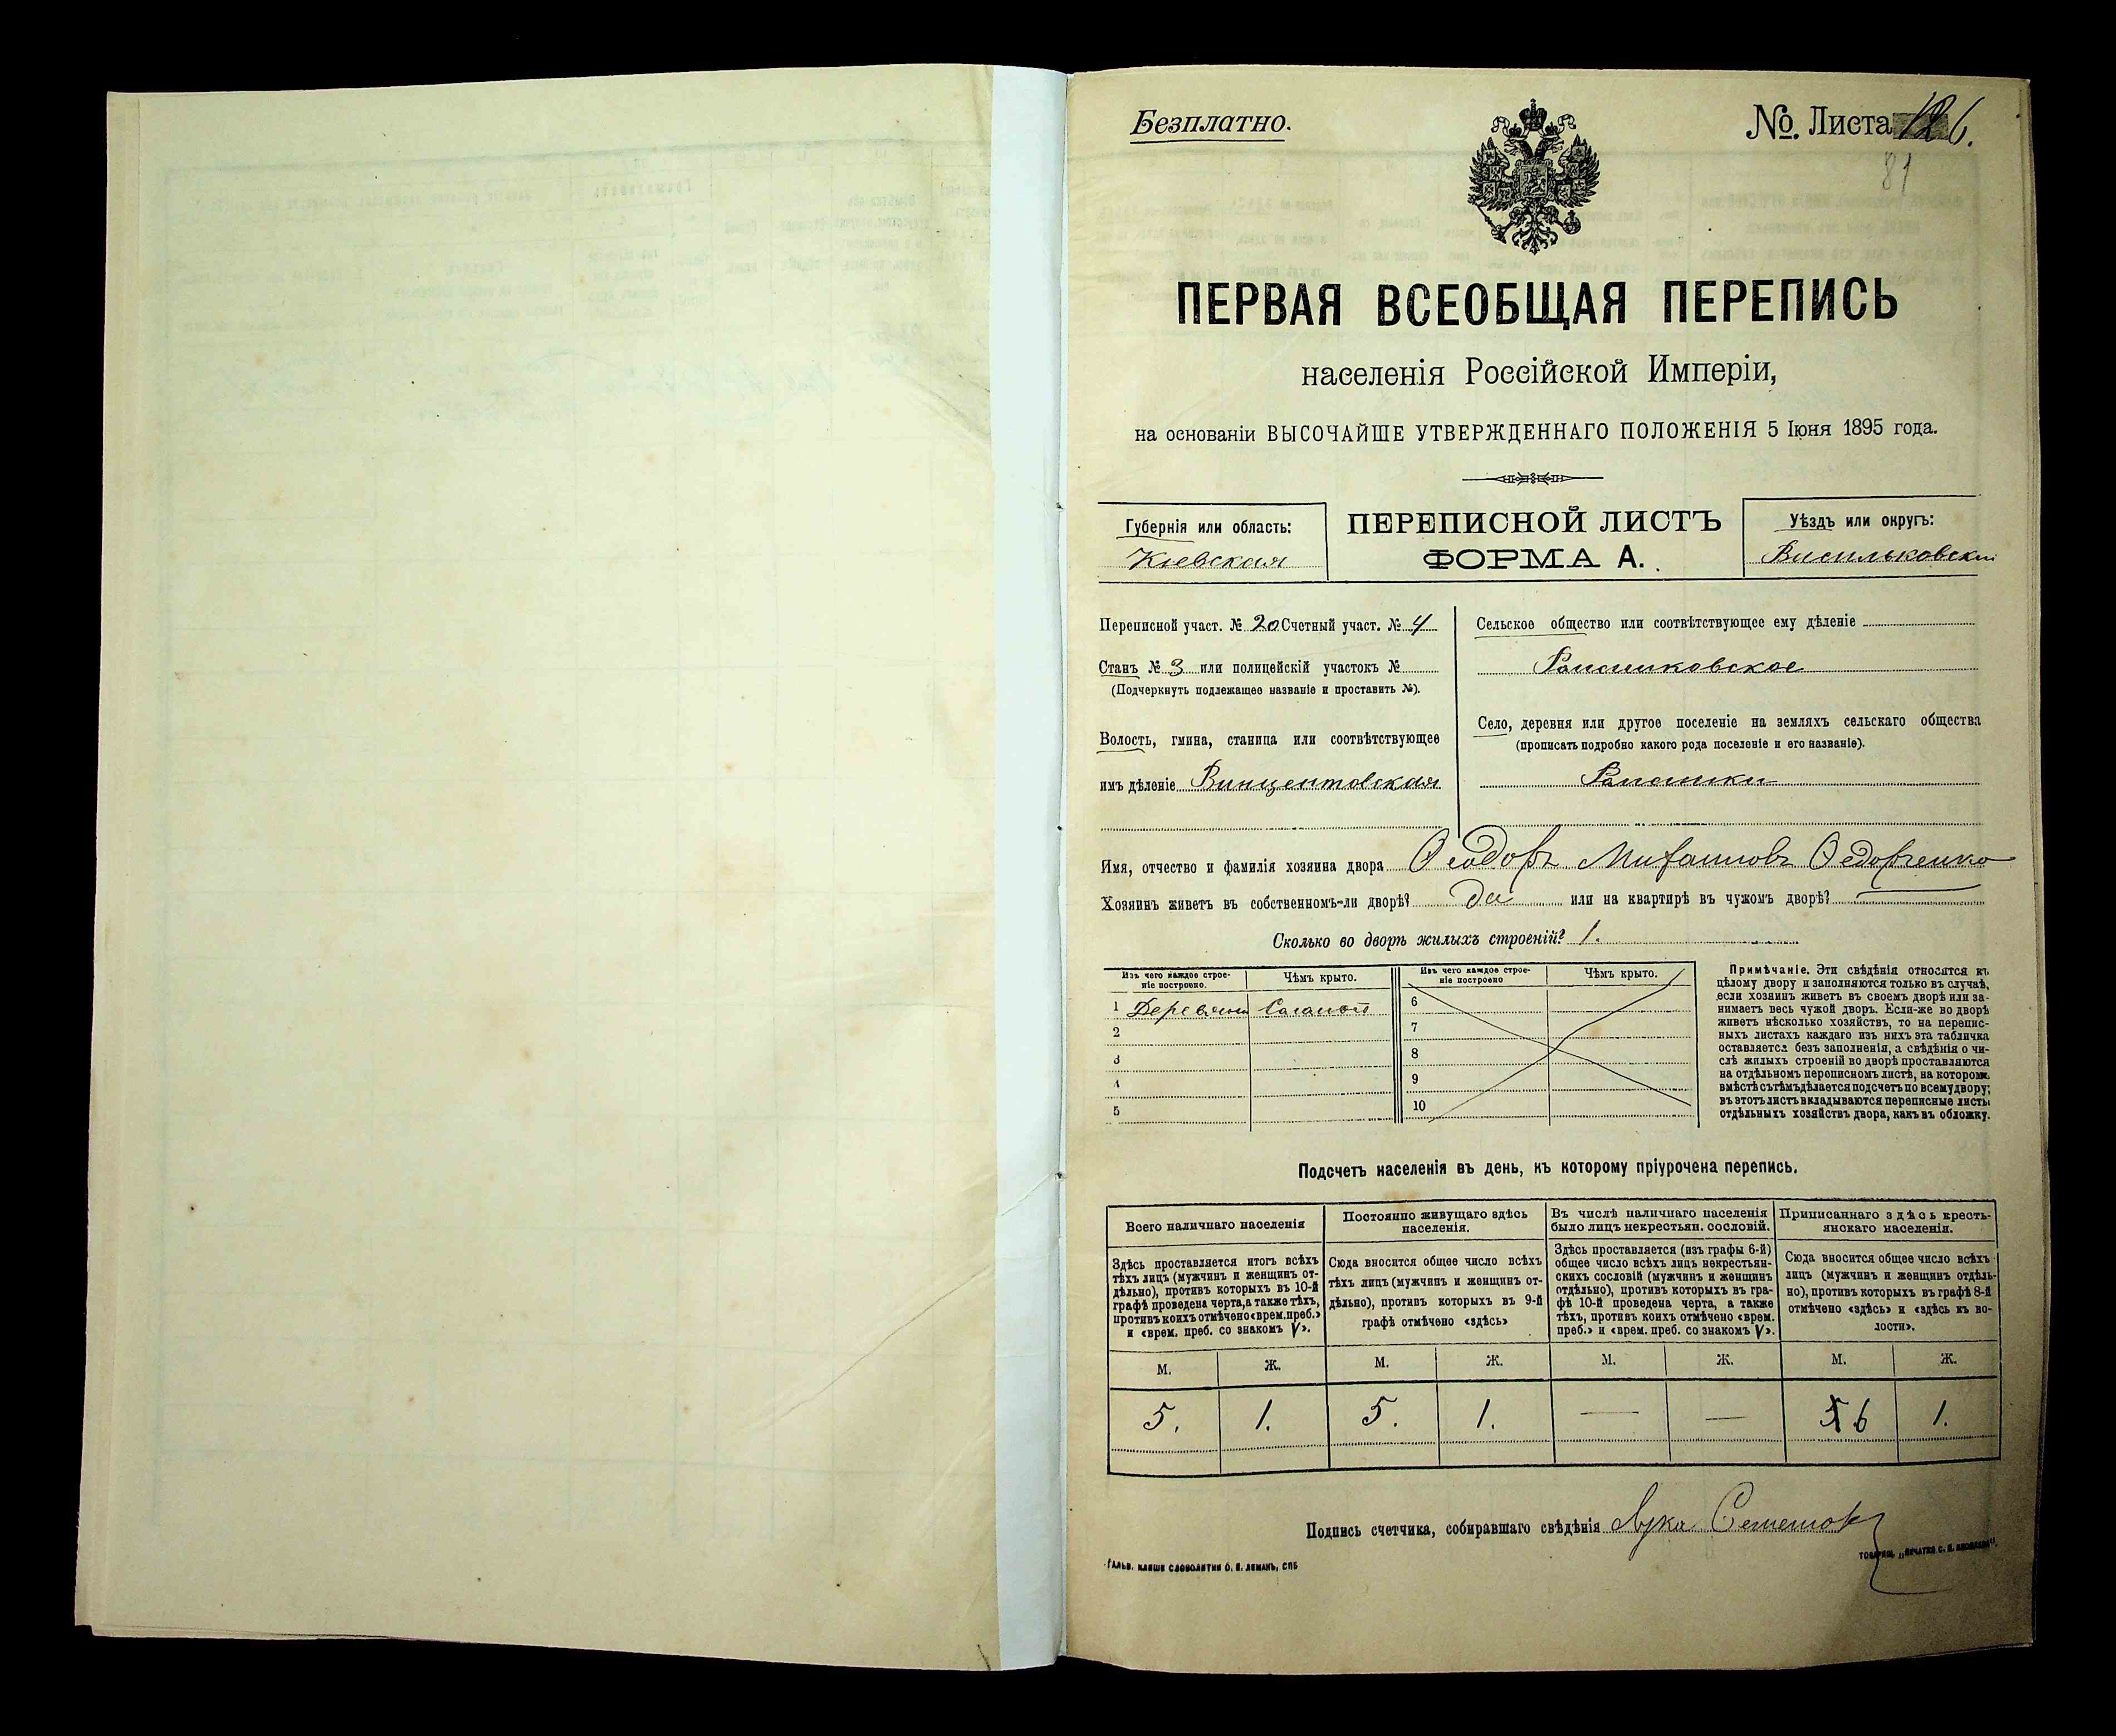 Безплатно.
№. Листа 126.
81
ПЕРВАЯ ВСЕОБЩАЯ ПЕРЕПИСЬ
населенія Россійской Имперіи,
на основаніи ВЫСОЧАЙШЕ УТВЕРЖДЕННАГО ПОЛОЖЕНІЯ 5 Іюня 1895 года.
Губернія или область:
Кіевская
ПЕРЕПИСНОЙ ЛИСТЪ
ФОРМА А.
Уѣздъ или округъ:
Васильковскій
Переписной участ. № 20 Счетный участ. № 4
Станъ № 3 или полицейскій участокъ №
(Подчеркнуть подлежащее названіе и проставить №).
Волость, гмина, станица или соотвѣтствующее
имъ дѣленіе Винцентовская
Сельское общество или соотвѣтствующее ему дѣленіе
Ромашковское
Село, деревня или другое поселеніе на земляхъ сельскаго общества
(прописать подробно какого рода поселеніе и его названіе).
Ромашки
Имя, отчество и фамилія хозяина двора Ѳеодоръ Михаиловъ Ѳедорченко
Хозяинъ живетъ въ собственномъ-ли дворѣ? да или на квартирѣ въ чужомъ дворѣ?
Сколько во дворѣ жилыхъ строеній? 1.
Изъ чего каждое строе-
ніе построено.
Чѣмъ крыто.
Изъ чего каждое строе-
ніе построено
Чѣмъ крыто.
1 Деревяно Соломой
2
3
4
5
6
7
8
9
10
Примѣчаніе. Эти свѣдѣнія относятся къ
цѣлому двору и заполняются только въ случаѣ,
если хозяинъ живетъ въ своемъ дворѣ или за-
нимаетъ весь чужой дворъ. Если-же во дворѣ
живетъ нѣсколько хозяйствъ, то на перепис-
ныхъ листахъ каждаго изъ нихъ эта табличка
оставляется безъ заполненія, а свѣдѣнія о чи-
слѣ жилыхъ строеній во дворѣ проставляются
на отдѣльномъ переписномъ листѣ, на которомъ
вмѣстѣ съ тѣмъ дѣлается подсчетъ по всему двору;
въ этотъ листъ вкладываются переписные листы
отдѣльныхъ хозяйствъ двора, какъ въ обложку.
Подсчетъ населенія въ день, къ которому пріурочена перепись.
Всего наличнаго населенія
Здѣсь проставляется итогъ всѣхъ
тѣхъ лицъ (мужчинъ и женщинъ от-
дѣльно), противъ которыхъ въ 10-й
графѣ проведена черта, а также тѣхъ,
противъ коихъ отмѣчено «врем. преб.»
и «врем. преб. со знакомъ V».
Постоянно живущаго здѣсь
населенія.
Сюда вносится общее число всѣхъ
тѣхъ лицъ (мужчинъ и женщинъ от-
дѣльно), противъ которыхъ въ 9-й
графѣ отмѣчено «здѣсь»
Въ числѣ наличнаго населенія
было лицъ некрестьян. сословій.
Здѣсь проставляется (изъ графы 6-й)
общее число всѣхъ лицъ некрестьян-
скихъ сословій (мужчинъ и женщинъ
отдѣльно), противъ которыхъ въ гра-
фѣ 10-й проведена черта, а также
тѣхъ, противъ коихъ отмѣчено «врем.
преб.» и «врем. преб. со знакомъ V».
Приписаннаго здѣсь кресть-
янскаго населенія.
Сюда вносится общее число всѣхъ
лицъ (мужчинъ и женщинъ отдѣль-
но), противъ которыхъ въ графѣ 8-й
отмѣчено «здѣсь» и «здѣсь къ во-
лости».
М. Ж. М. Ж. М. Ж. М. Ж.
5. 1. 5. 1. — — 5 6 1.
Подпись счетчика, собиравшаго свѣдѣнія Лука
Гальв. клише словолитни О. И. Леманъ, СПБ